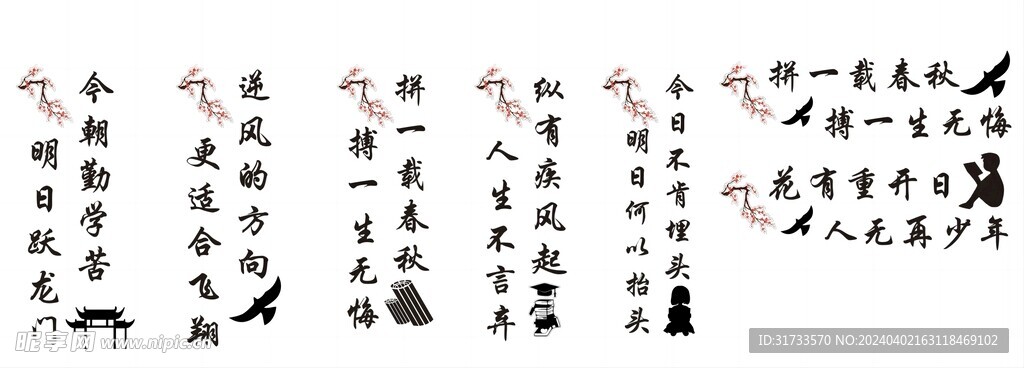 今朝勤学苦
明日跃龙门
逆风的方向
更适合飞翔
拼一载春秋
搏一生无悔
纵有疾风起
人生不言弃
今日不肯埋头
明日何以抬头
拼一载春秋
搏一生无悔
花有重开日
人无再少年
昵享网 www.nipic.cn
ID:31733570 NO:20240402163118469102